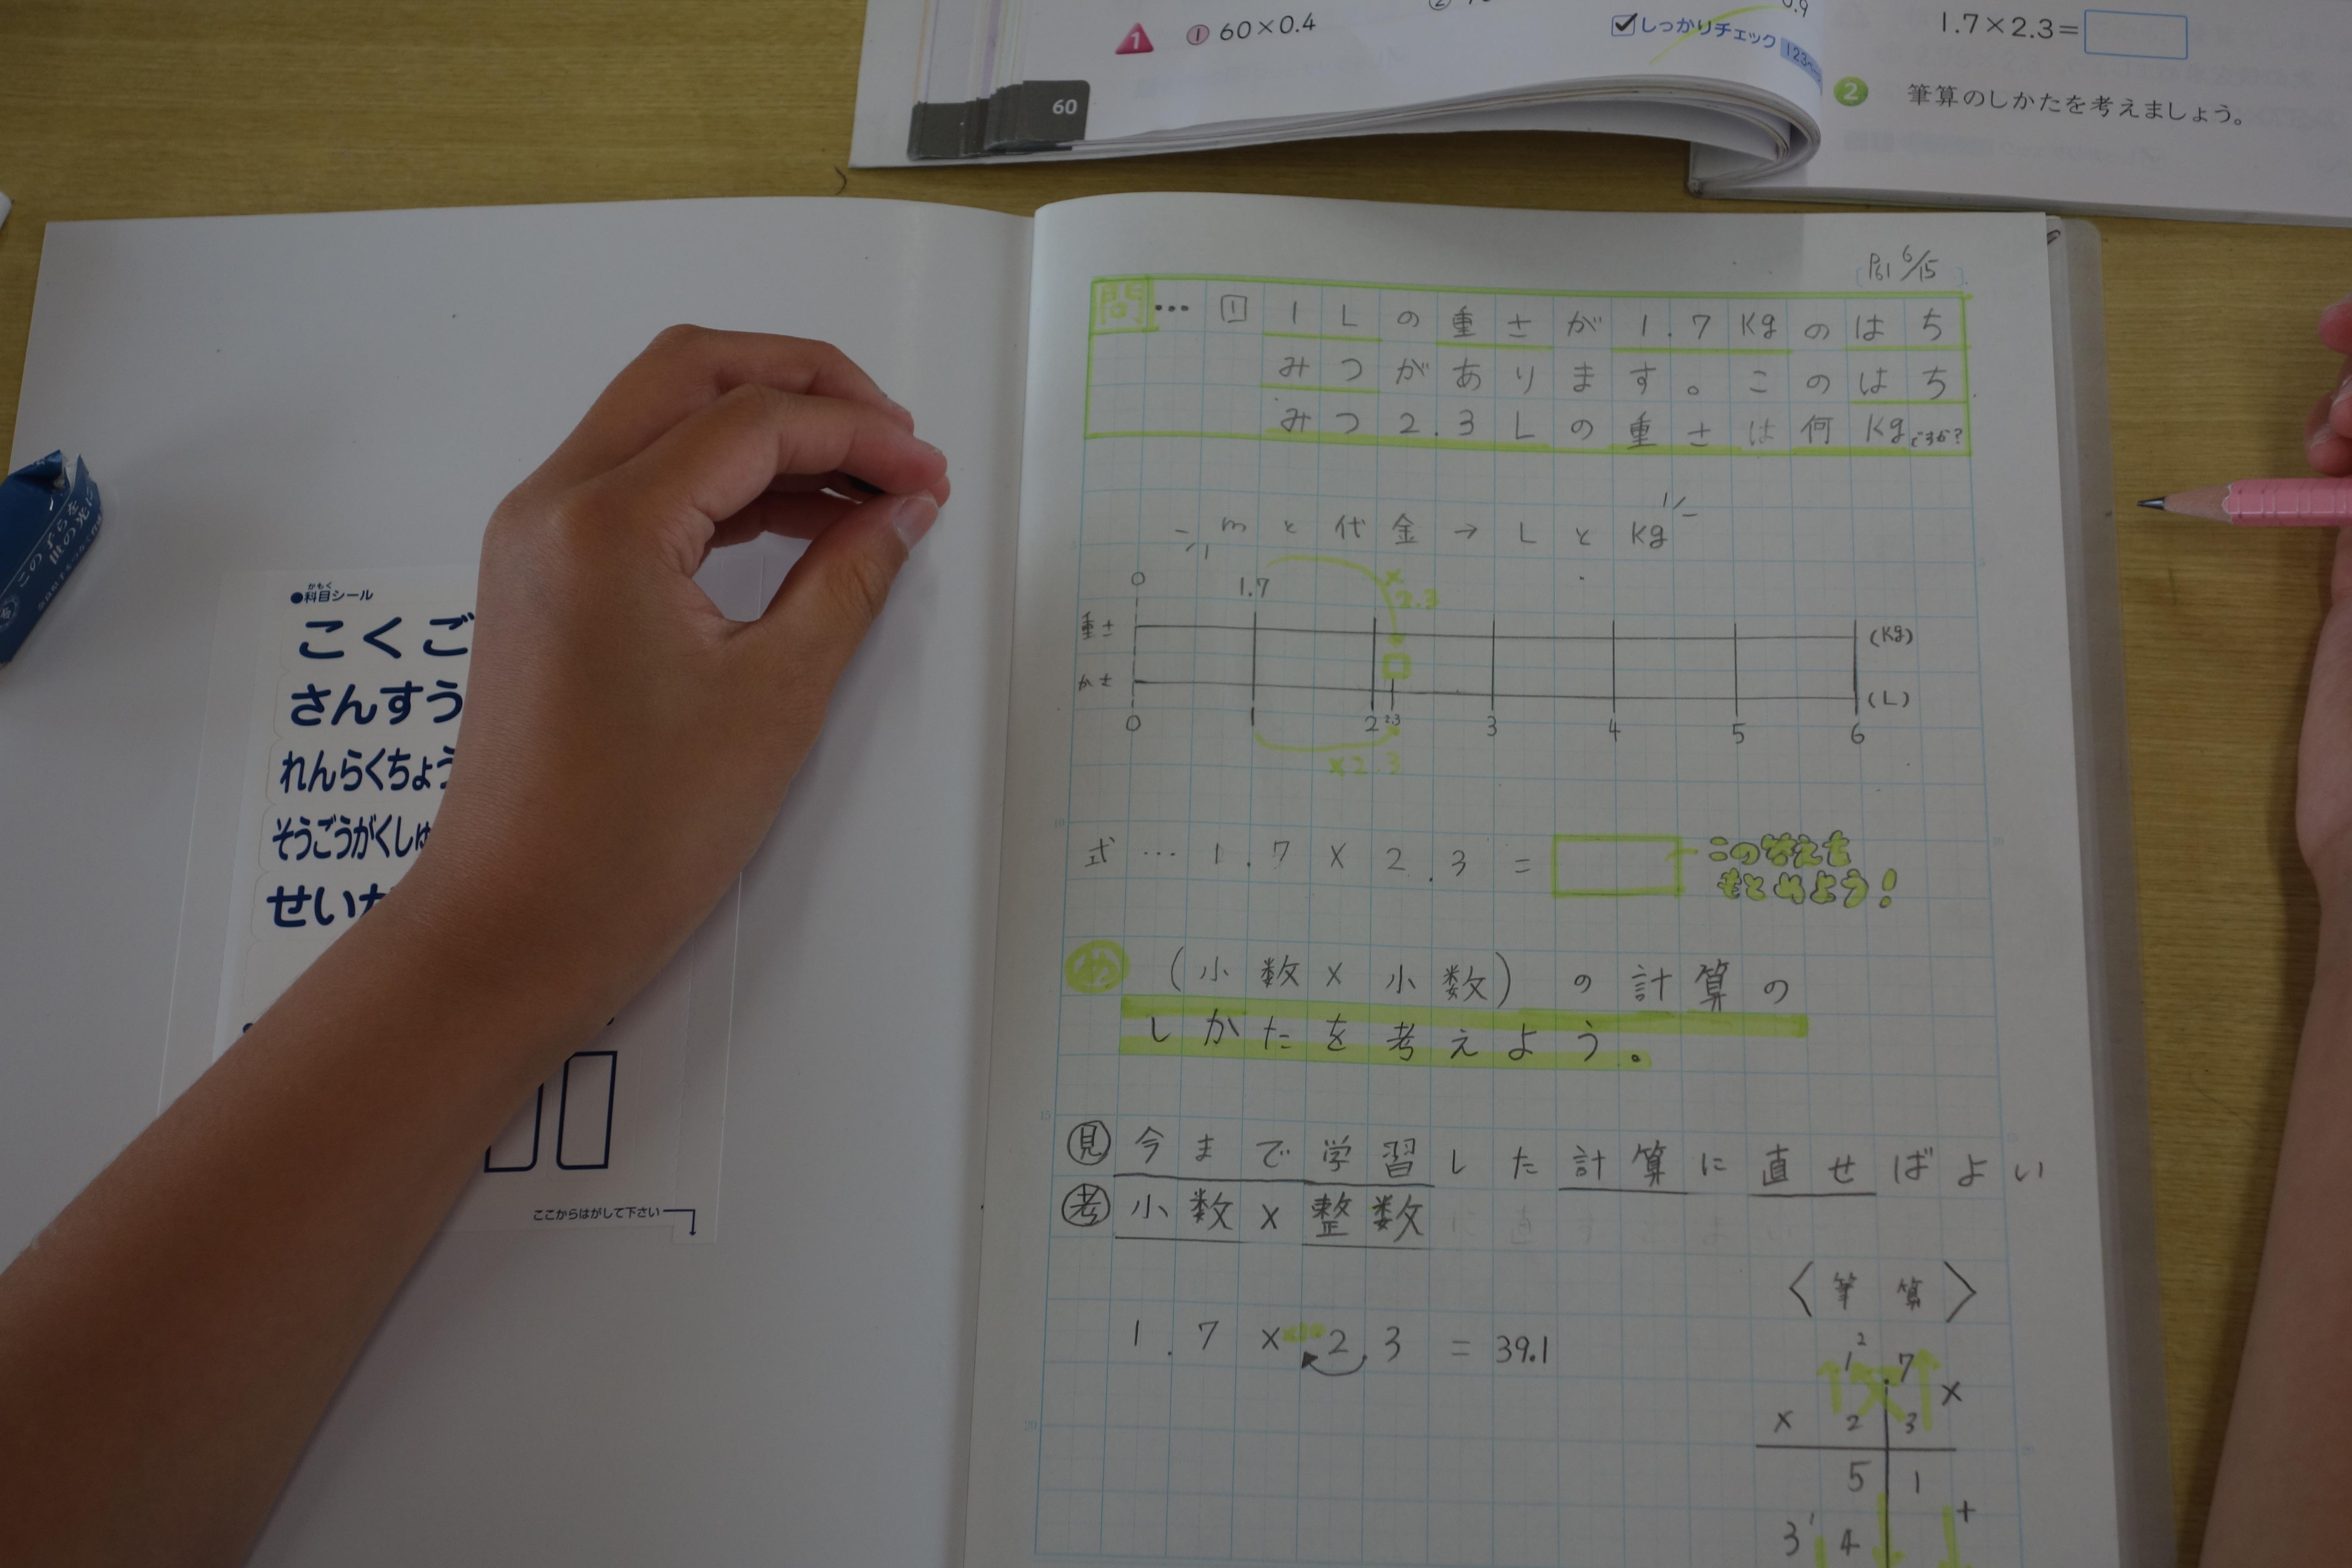 1 ① 60×0.4
しっかりチェック
60
1.7×2.3=
2 筆算のしかたを考えましょう。
P61 6/15
問…1 1Lの重さが1.7Kgのはち
みつがあります。このはち
みつ2.3Lの重さは何Kgですか?
mと代金→LとKg
0 1.7 ×2.3
重さ (Kg)
かさ (L)
0 1 2 2.3 3 4 5 6
×2.3
式…1.7×2.3= この答えを
もとめよう!
め (小数×小数)の計算の
しかたを考えよう。
見 今まで学習した計算に直せばよい
考 小数×整数
〈筆算〉
1.7×2.3=39.1
2
1.7
×
× 2 3
5 1
+
3 4
かもく
●科目シール
こくご
さんすう
れんらくちょう
そうごうがくしゅ
せいか
ここからはがして下さい
このよろこびを
世の光に